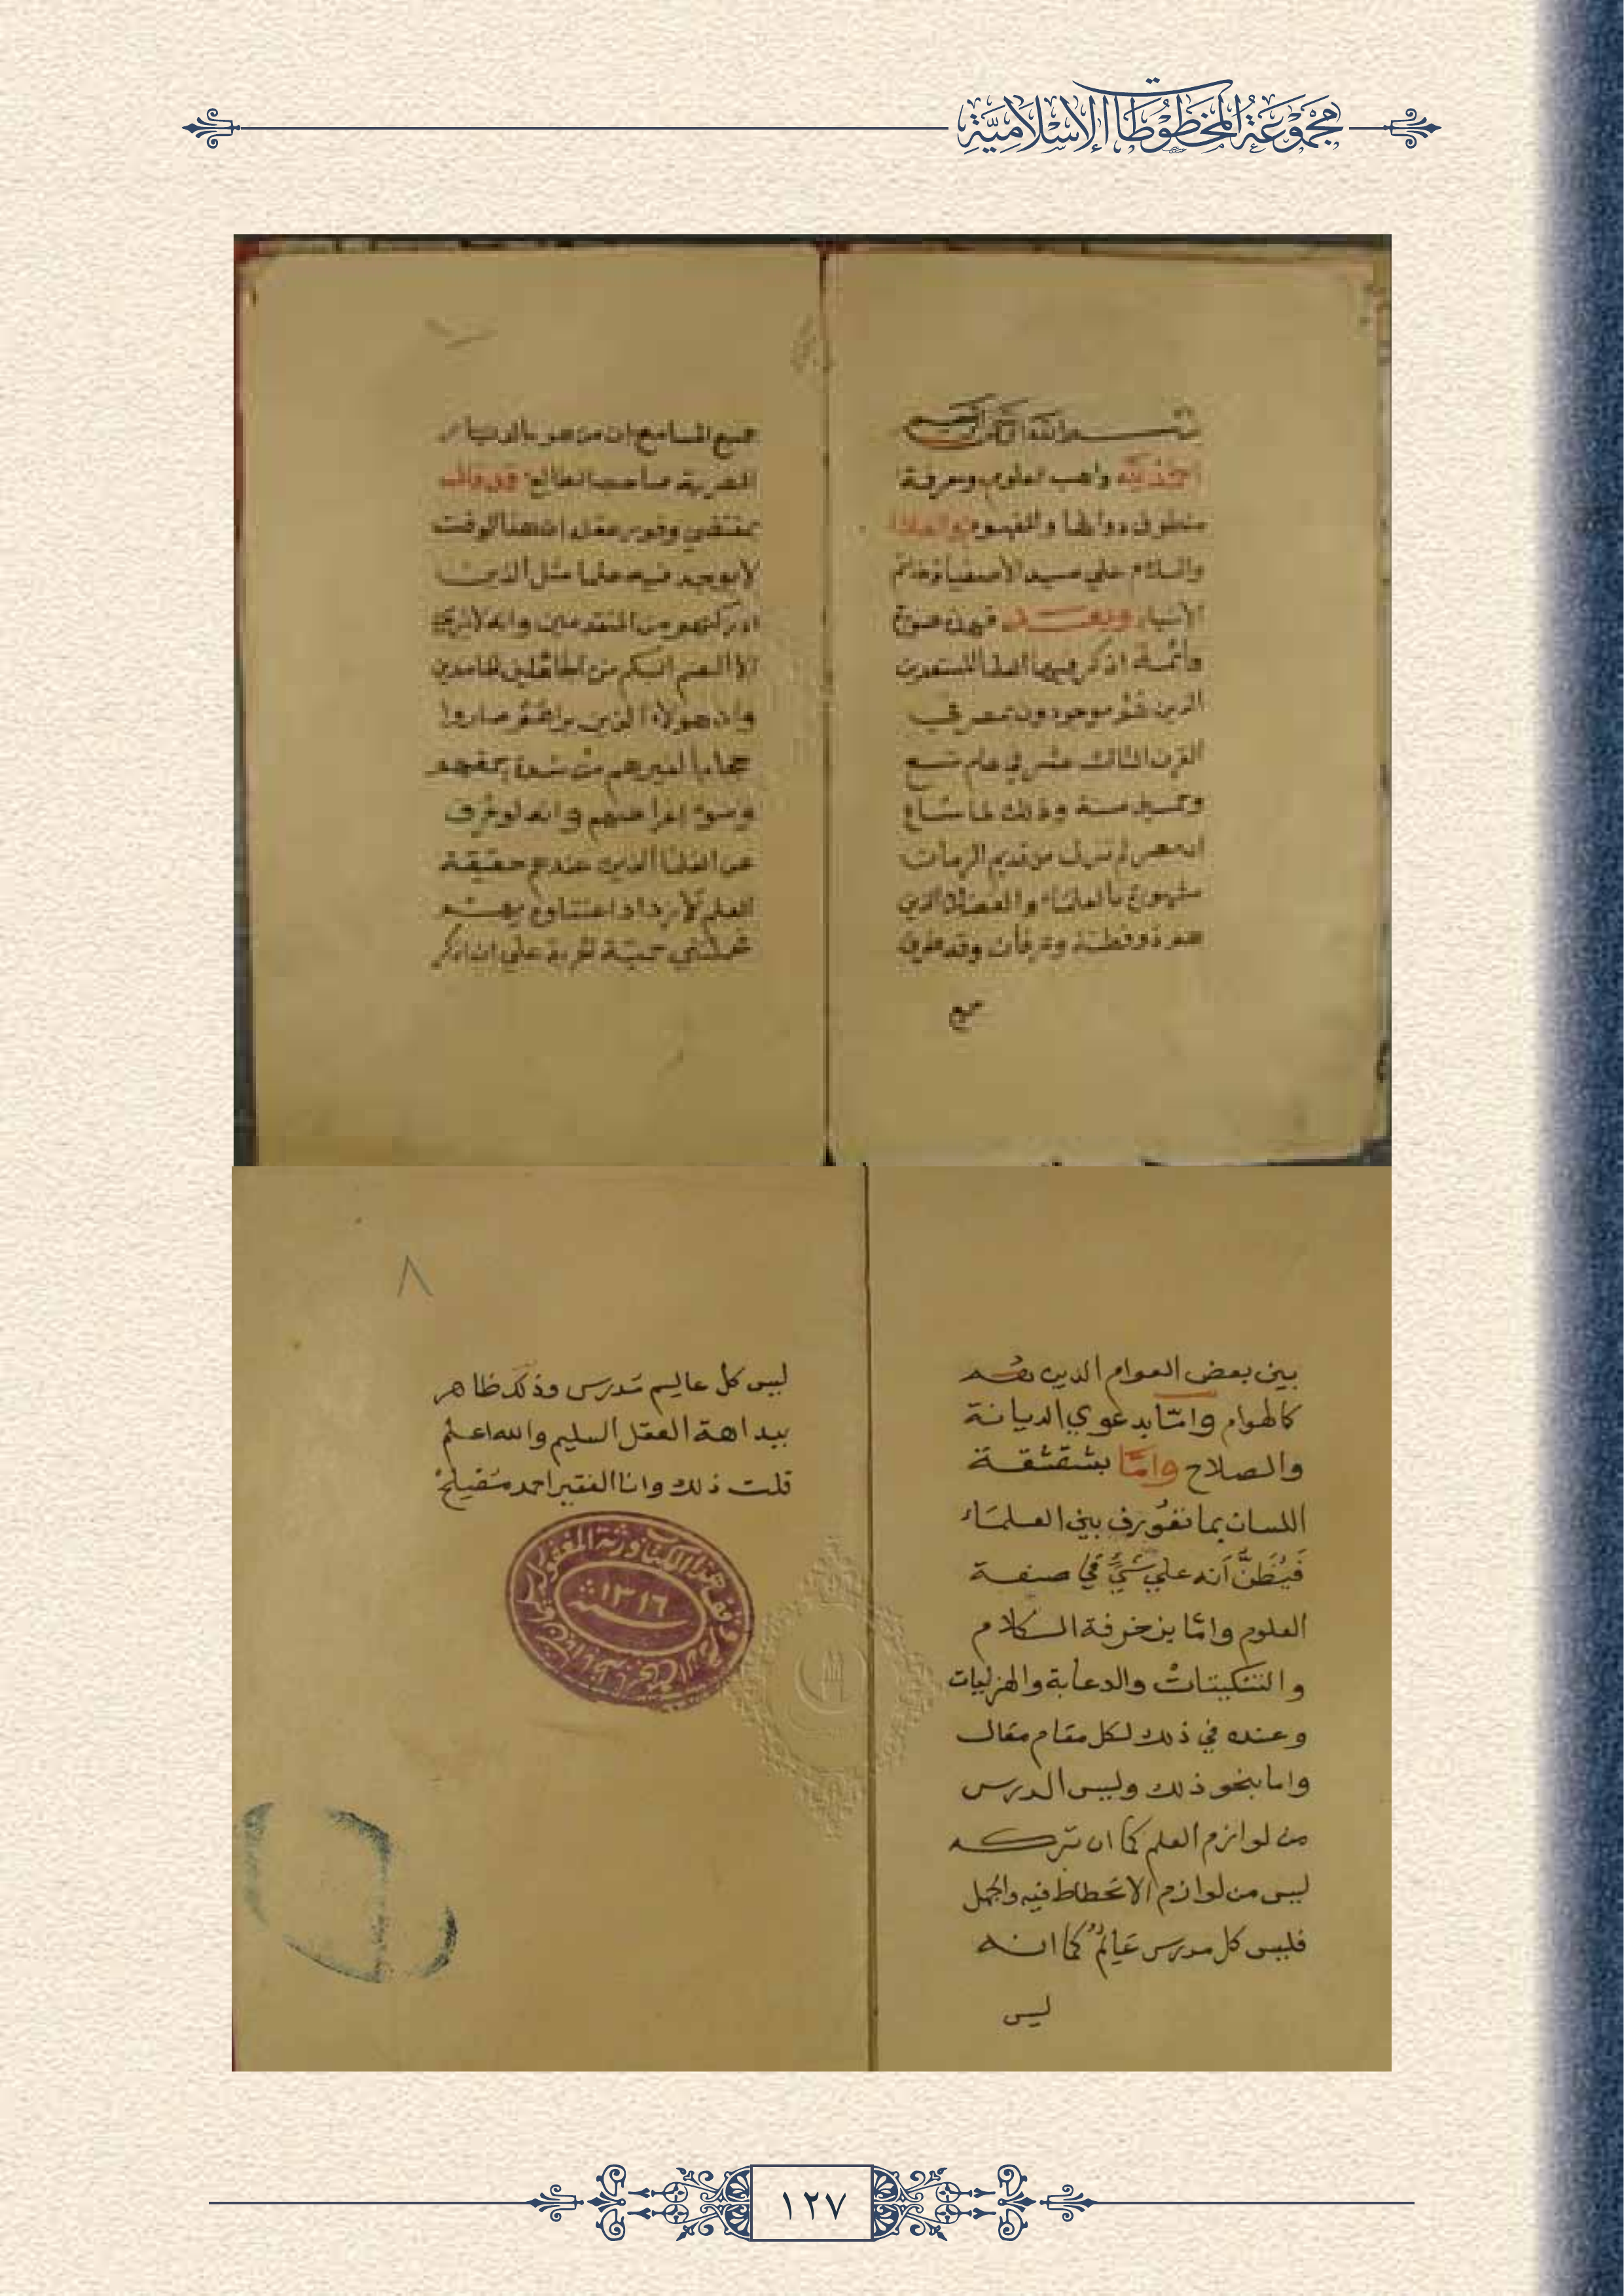 مجموعة المخطوطات الإسلامية
بسم الله الرحمن الرحيم
الحمد لله واهب العلوم ومعرفة
منطوق دوالها والمفهوم والصلاة
والسلام علي سيد الأصفياء وخاتم
الأنبياء وبعد فهذه صورة
قائمة اذكر فيها العلما المستعدين
الذين هم موجودون بمصر في
القرن الثالث عشر في عام تسع
وخمسين سنة وذلك لما شاع
ان مصر لم تزل من قديم الزمان
مشهورة بالعلماء والفضلا الذين
هم ذو فطنة وعرفان وقد طرق
جميع
جميع المسامع ان من هو بالديار
المصرية صاحب الطالع قد قال
بمقتضي وفور عقله ان هذا الوقت
لا يوجد فيه علما مثل الذين
ادركتهم من المتقدمين وانه لا
الا الصم البكم من الجامدين
وان هولاء الذين نراهم صاروا
حجابا لغيرهم من شدة
وسوء اغراضهم وانه لو عرف
عن العلما الذين عندهم حقيقة
العلم لازداد اعتناؤه بهم
فحملتني حمية علي ان اذكر
بين بعض العوام الذين هم
كالهوام وامّا بدعوي الديانة
والصلاح وامّا بشقشقة
اللسان بما تعورف بين العلماء
فَيُظَنَّ أنه علي شيءٍ في صنعة
العلوم وامّا بزخرفة الكلام
والتنكيتات والدعابة والهزليات
وعنده في ذلك لكل مقام مقال
واما بنحو ذلك وليس الدرس
من لوازم العلم كما ان تركه
ليس من لوازم الانحطاط فيه والجهل
فليس كل مدرس عَالِمٌ كما انه
ليس
٨
ليس كل عالم مدرس وذلك ظاهر
ببداهة العقل السليم والله اعلم
قلت ذلك وانا الفقير احمد
وقف هذا الكتاب ورثة المغفور له
سنة ١٣١٦
١٢٧